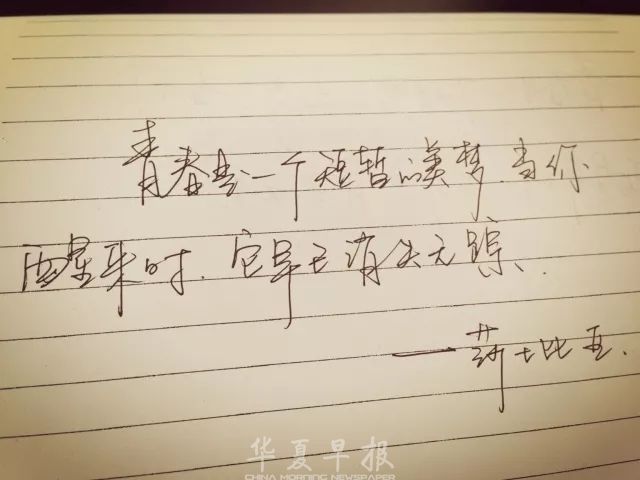 青春是一个短暂的美梦,当你
醒来时,它早已消失无踪、
——莎士比亚.
华夏早报
CHINA MORNING NEWSPAPER